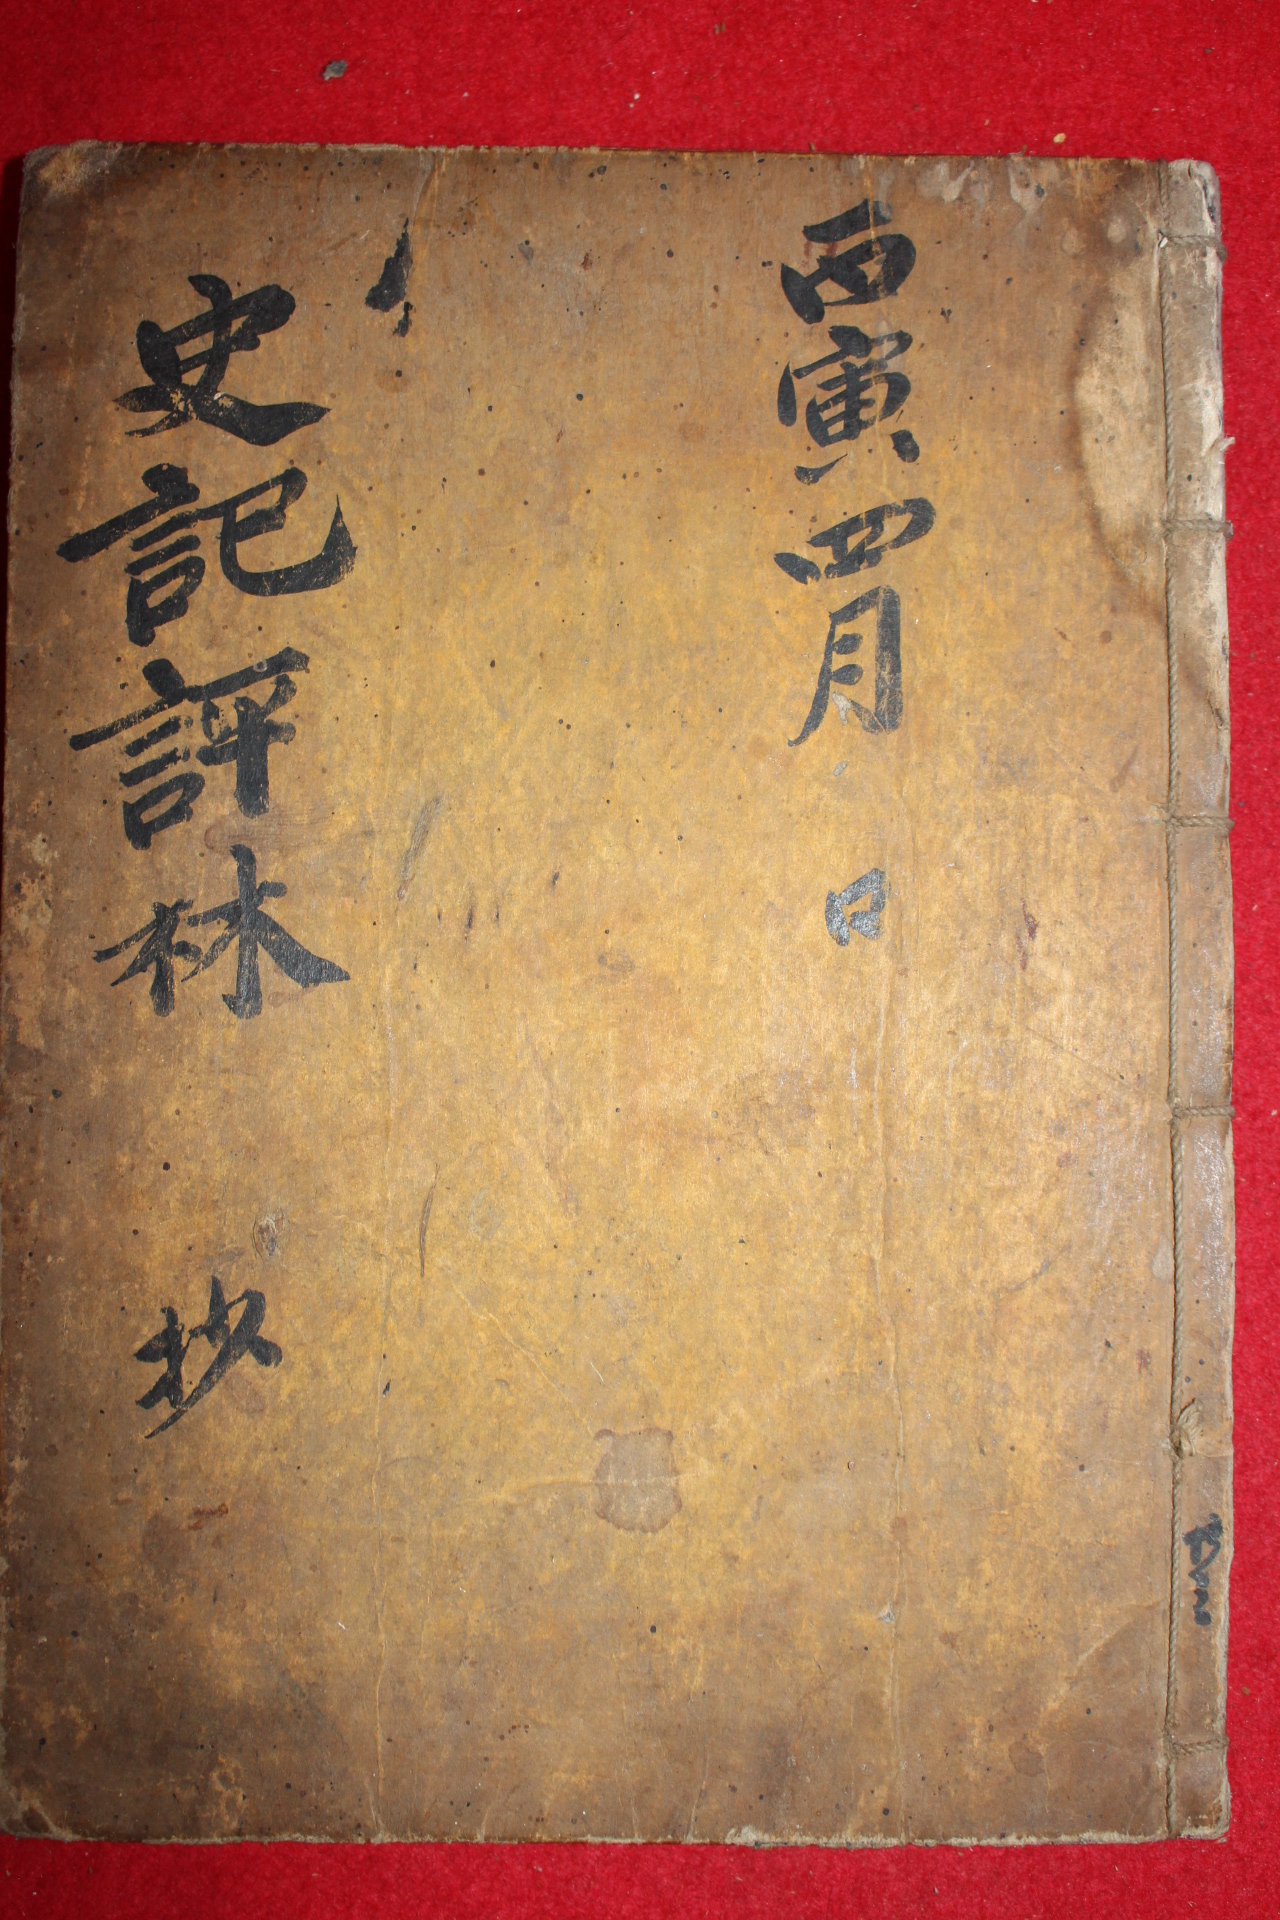 丙寅四月 日
史記評林 抄